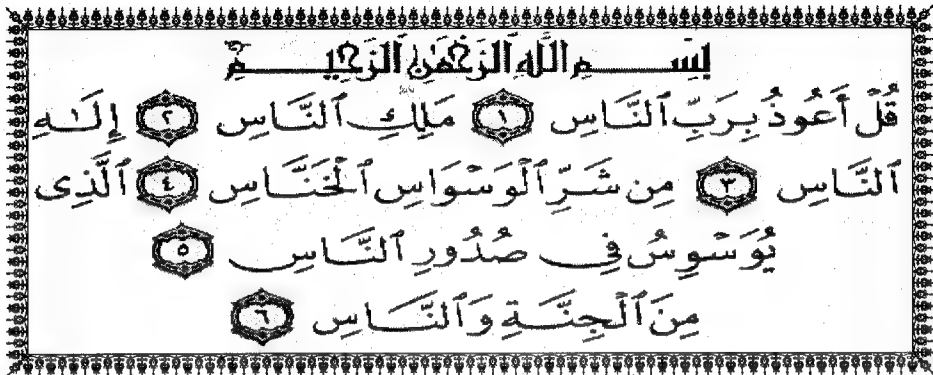 بِسْمِ اللَّهِ الرَّحْمَٰنِ الرَّحِيمِ
قُلْ أَعُوذُ بِرَبِّ ٱلنَّاسِ ١ مَلِكِ ٱلنَّاسِ ٢ إِلَـٰهِ
ٱلنَّاسِ ٣ مِن شَرِّ ٱلْوَسْوَاسِ ٱلْخَنَّاسِ ٤ ٱلَّذِى
يُوَسْوِسُ فِى صُدُورِ ٱلنَّاسِ ٥
مِنَ ٱلْجِنَّةِ وَٱلنَّاسِ ٦